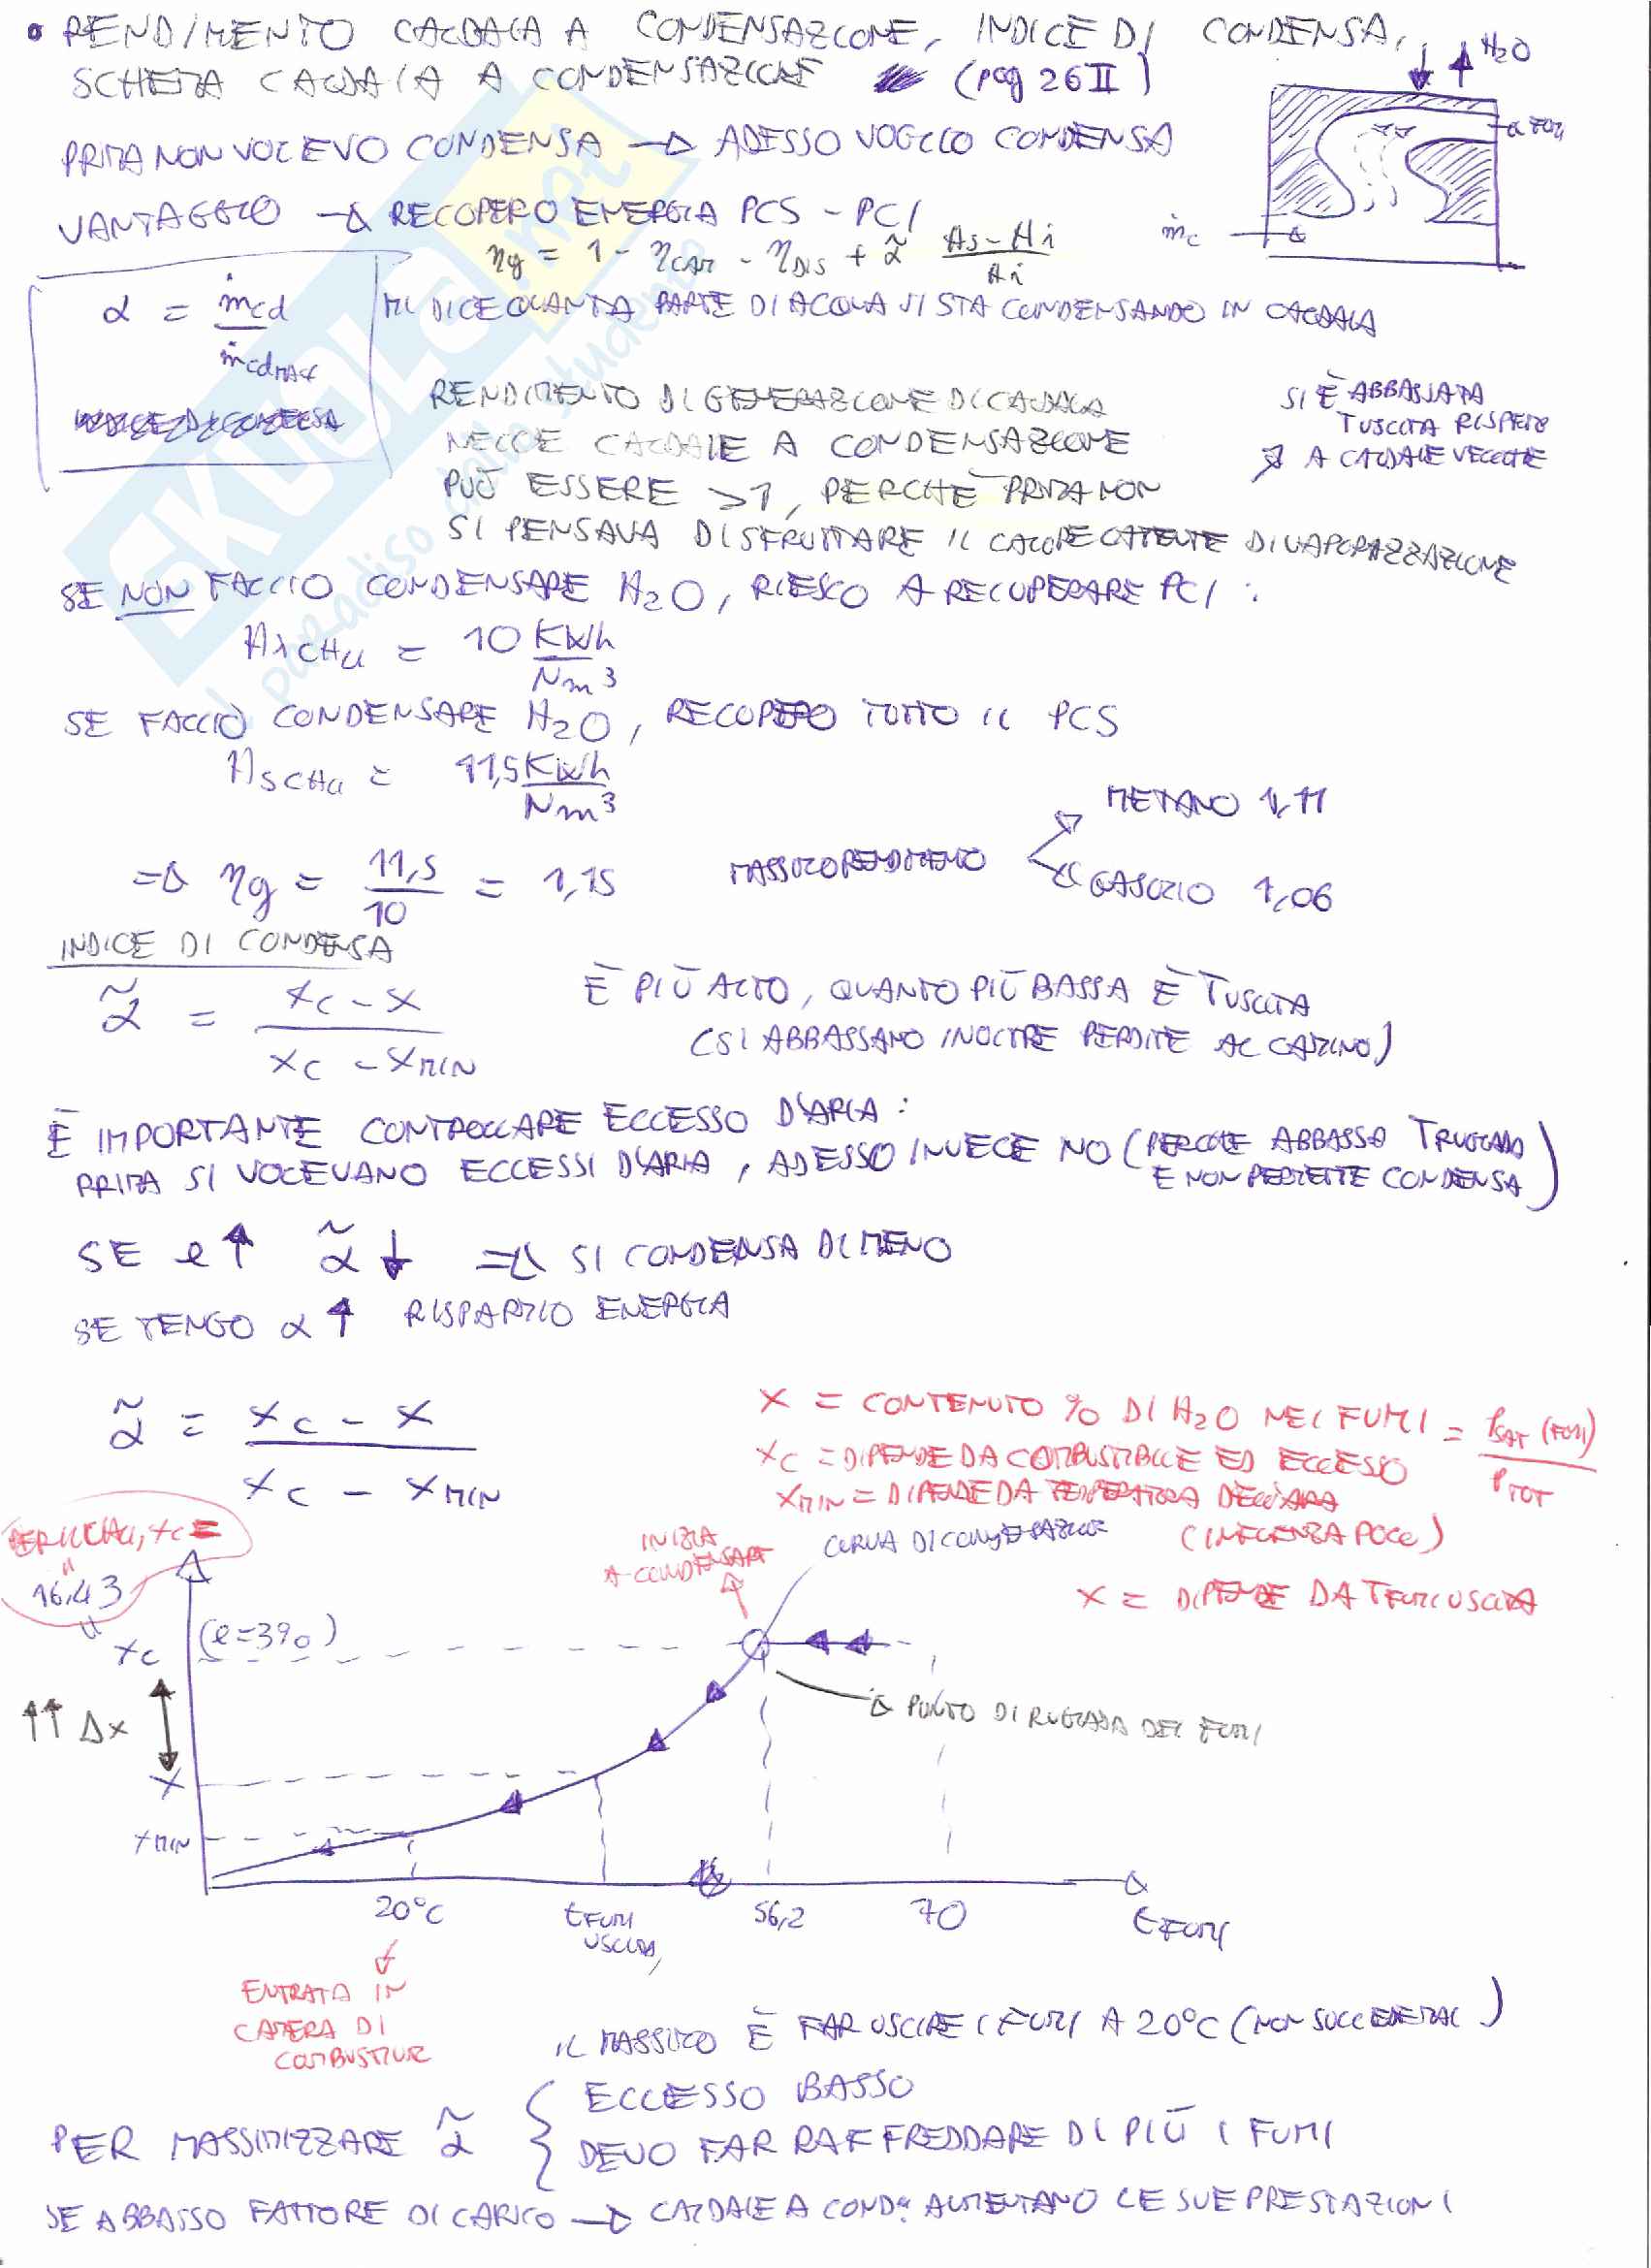 • RENDIMENTO CALDAIA A CONDENSAZIONE, INDICE DI CONDENSA,
SCHEMA CALDAIA A CONDENSAZIONE (pag 26 II)
H2O
FUMI
ṁc
PRIMA NON VOLEVO CONDENSA → ADESSO VOGLIO CONDENSA
VANTAGGIO → RECUPERO ENERGIA PCS - PCI
ηg = 1 - ηCAM - ηDIS + α̃ (Hs - Hi)/Hi
α = ṁcd / ṁcd MAX
MI DICE QUANTA PARTE DI ACQUA SI STA CONDENSANDO IN CALDAIA
INDICE DI CONDENSA
RENDIMENTO DI GENERAZIONE DI CALDAIA
NELLE CALDAIE A CONDENSAZIONE
PUÒ ESSERE >1, PERCHÈ PRIMA NON
SI PENSAVA DI SFRUTTARE IL CALORE LATENTE DI VAPORAZZAZIONE
SI È ABBASSATA
TUSCITA RISPETTO
A CALDAIE VECCHIE
SE NON FACCIO CONDENSARE H2O, RIESCO A RECUPERARE PCI :
Hi CH4 = 10 KWh/Nm³
SE FACCIO CONDENSARE H2O, RECUPERO TUTTO IL PCS
Hs CH4 = 11,5 KWh/Nm³
⇒ ηg = 11,5/10 = 1,15
MASSIMO RENDIMENTO
METANO 1,11
GASOLIO 1,06
INDICE DI CONDENSA
α̃ = (xc - x)/(xc - xMIN)
È PIÙ ALTO, QUANTO PIÙ BASSA È TUSCITA
(SI ABBASSANO INOLTRE PERDITE AL CAMINO)
È IMPORTANTE CONTROLLARE ECCESSO D'ARIA :
PRIMA SI VOLEVANO ECCESSI D'ARIA, ADESSO INVECE NO (PERCHÈ ABBASSO TRUGIADA
E NON PERMETTE CONDENSA)
SE e ↑ α̃ ↓ ⇒ SI CONDENSA DI MENO
SE TENGO α ↑ RISPARMIO ENERGIA
α̃ = (xc - x)/(xc - xMIN)
x = CONTENUTO % DI H2O NEI FUMI = PSAT (FUMI)/PTOT
xc = DIPENDE DA COMBUSTIBILE ED ECCESSO
xMIN = DIPENDE DA TEMPERATURA DELL'ARIA
(INFLUENZA POCO)
x = DIPENDE DA TFUMI USCITA
PER IL CH4, xc =
16,43
INIZIA
A CONDENSARE
CURVA DI CONDENSAZIONE
xc (e=3%)
↑↑ Δx
PUNTO DI RUGIADA DEI FUMI
x
xMIN
20°C
tFUMI
USCITA
56,2
70
tFUMI
ENTRATA IN
CAMERA DI
COMBUSTIONE
IL MASSIMO È FAR USCIRE I FUMI A 20°C (NON SUCCEDE MAI)
PER MASSIMIZZARE α̃ { ECCESSO BASSO
DEVO FAR RAFFREDDARE DI PIÙ I FUMI
SE ABBASSO FATTORE DI CARICO → CALDAIE A COND. AUMENTANO LE SUE PRESTAZIONI
SKUOLA.net
il paradiso dello studente